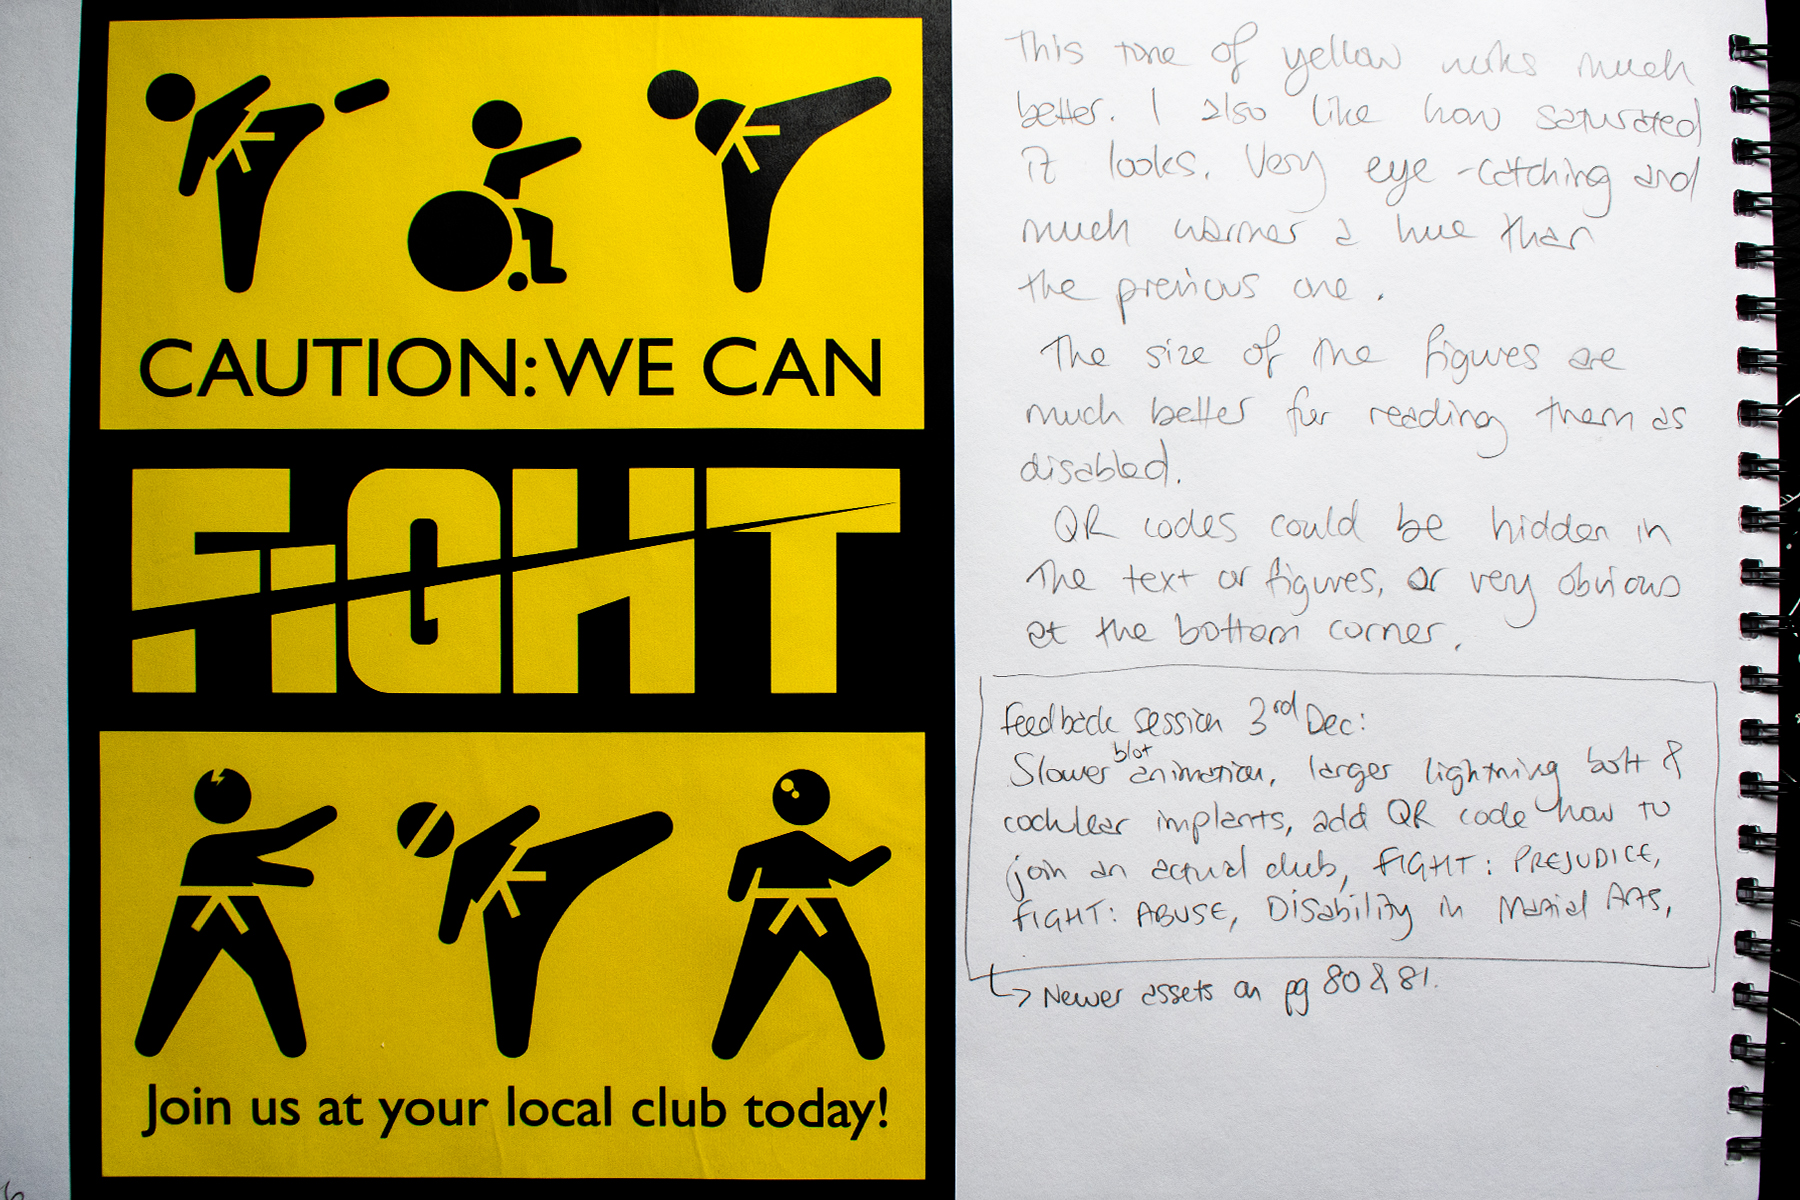 CAUTION: WE CAN
FIGHT
Join us at your local club today!
This tone of yellow works much
better. I also like how saturated
it looks. Very eye-catching and
much warmer a hue than
the previous one.
The size of the figures are
much better for reading them as
disabled.
QR codes could be hidden in
the text or figures, or very obvious
at the bottom corner.
Feedback session 3rd Dec:
Slower blot animation, larger lightning bolt &
cochlear implants, add QR code how to
join an actual club, FIGHT: PREJUDICE,
FIGHT: ABUSE, Disability in Martial Arts,
→ Newer assets on pg 80 & 81.